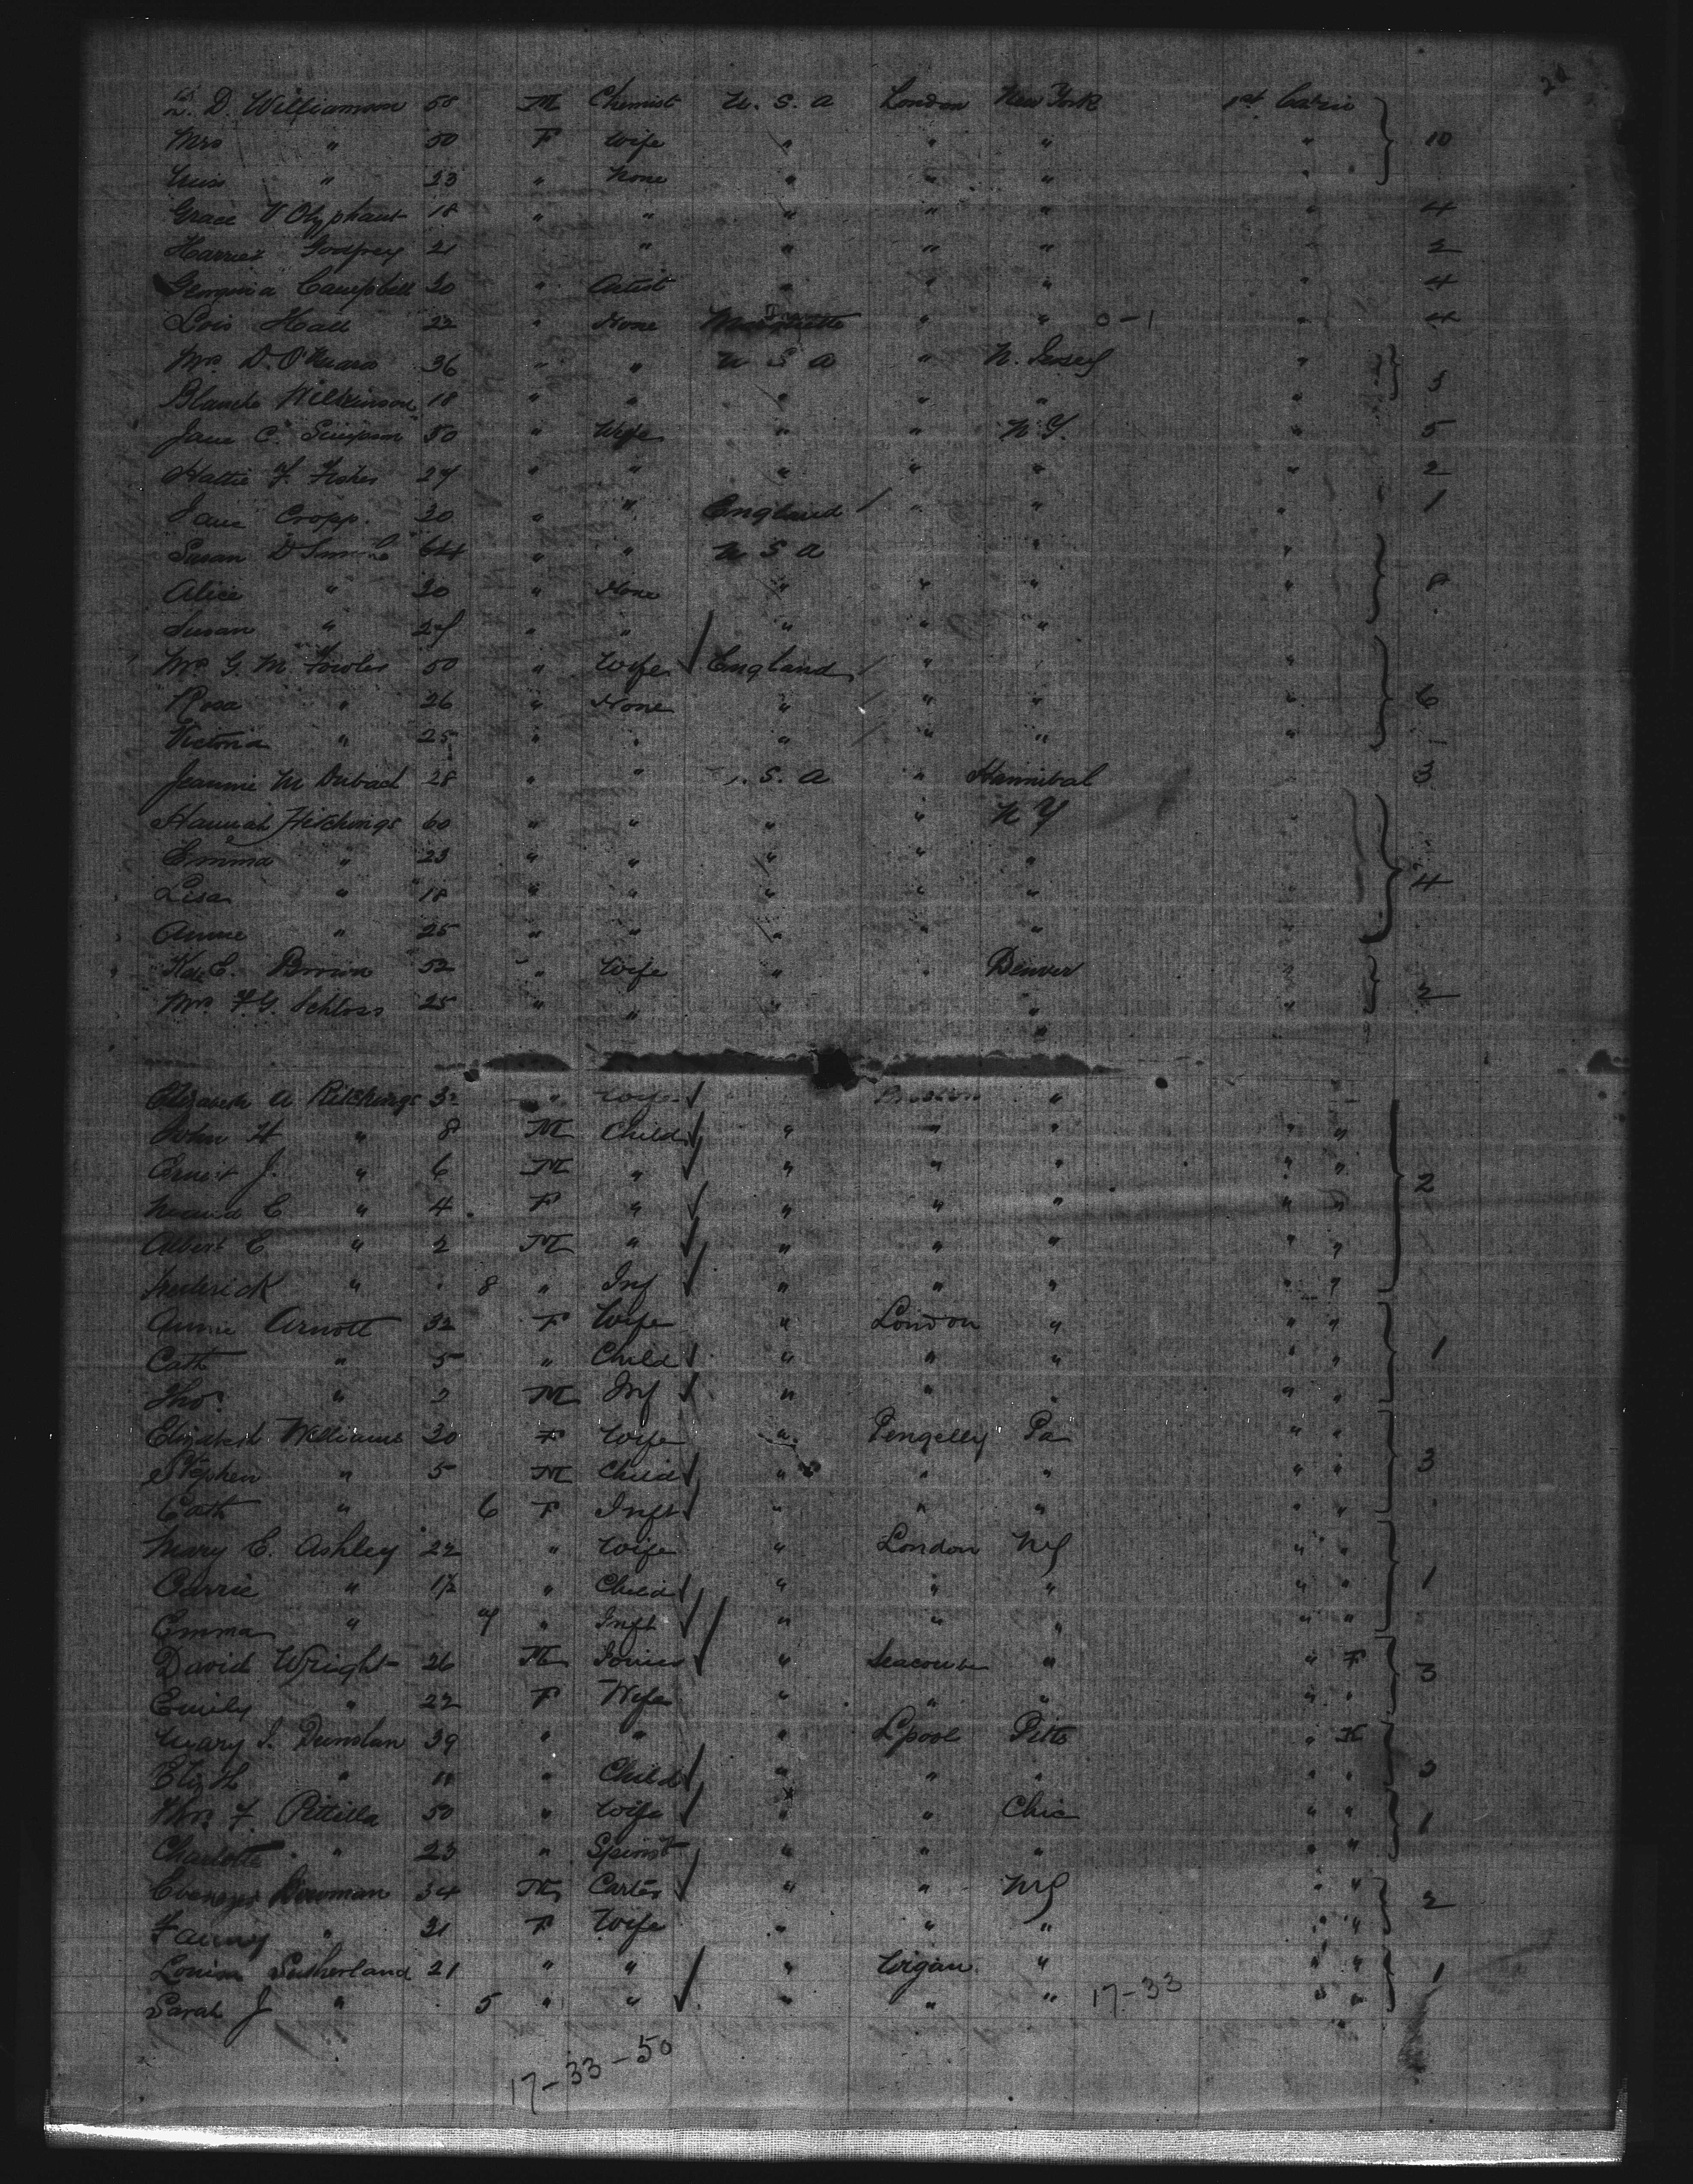 D. Williamson 50 M Chemist U. S. A London New York 1st Cabin 10
Mrs " 50 F Wife " " " "
Miss " 23 " None " " "
Grace V Olyphant 18 " " " " " " 4
Harriet Godfrey 21 " " " " " 2
Georgina Campbell 30 " Artist " " " " 4
Lois Hall 22 " None " " 0-1 " 4
Mrs D. O'Meara 36 " " U S A " N. Jersey " 3
Blanch Wilkinson 18 " " " " " "
Jane C. Simpson 50 " Wife " " N.Y. " 5
Hattie F. Fisher 27 " " " " " " 2
Jane Cropp. 30 " " England / " " " 1
Susan D " " U S A " "
Alice " 30 " None " " " 8
Susan " 27 " " " " "
Mrs G. M Fowler 50 " Wife England / " " "
Rosa " 26 " None " / " " " 6
Victoria " 25 " " " / " " "
Jeannie M 28 " " S. A " Hannibal 3
Hannah Hitchings 60 " " " " N Y
Emma " 23 " " " " "
Lisa " 18 " " " " " 4
Annie " 25 " " " " "
E. Brown 52 " Wife " " Denver "
Mrs F. G. Schloss 25 " " " " " 2
Elizabeth A " Wife "
John H " 8 M Child " " " " "
Ernest J. " 6 M " " " " " "
Maud E " 4 F " " " " " " 2
Albert E " 2 M " " " " " "
Frederick " 8 " Inf " " " " "
Annie Arnott 32 F Wife " London " " "
Cath " 5 " Child " " " " " 1
Thos. " 2 M Inf " " " " "
Elizabeth Williams 30 F Wife " Pengelly Pa " "
Stephen " 5 M Child " " " " " 3
Cath " 6 F Inft " " " " "
Mary E. Ashley 22 " Wife " London NY " "
Carrie " 1½ " Child " " " " " 1
Emma " 7 " Inft " " " " "
David Wright 26 M Joiner " Seacombe " " F 3
Emily " 22 F Wife " " " " "
Mary J. Dunstan 39 " " " Lpool Pitts "
Elizth " 11 " Child " " " " "
Mrs F. Pittilla 50 " Wife " " Chic " " 1
Charlotte " 23 " Spinst " " " "
Ebenezer Bowman 34 M Carter " " NY " " 2
Fanny " 31 F Wife " " " " "
Louisa Sutherland 21 " " " Wigan " " " 1
Sarah J " 5 " " " " " 17-33 " "
17-33-50